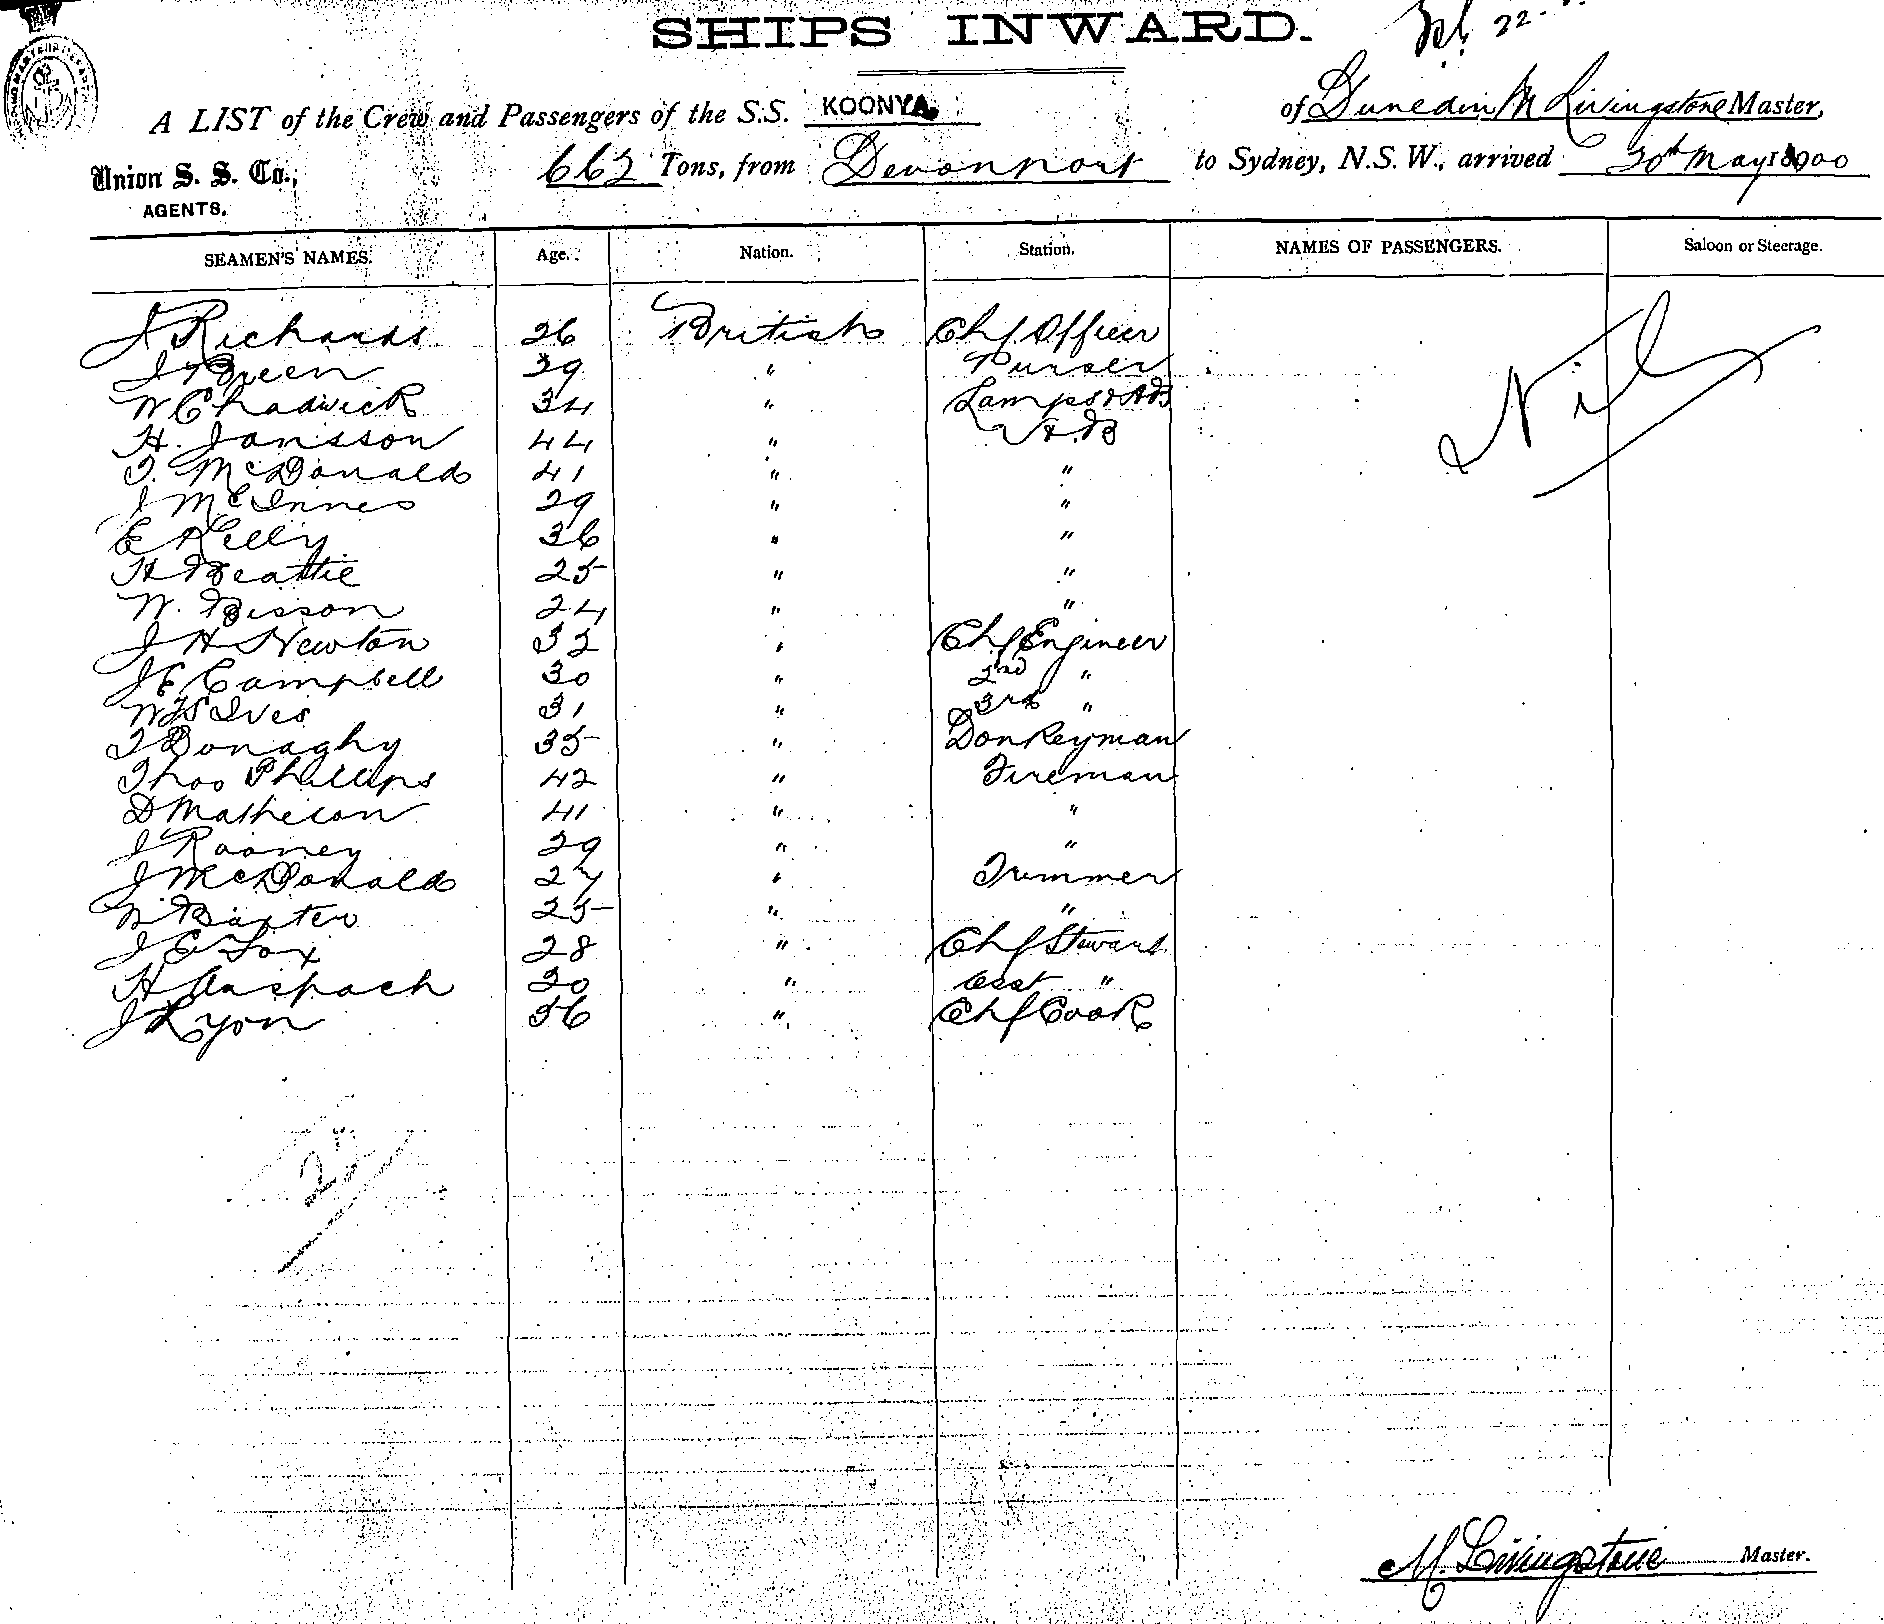 SHIPS INWARD.
22
A LIST of the Crew and Passengers of the S.S. KOONYA. of Dunedin M Livingstone Master,
Union S. S. Co., AGENTS.
662 Tons, from Devonport to Sydney, N.S.W., arrived 20th May 1900
SEAMEN'S NAMES. Age. Nation. Station. NAMES OF PASSENGERS. Saloon or Steerage.
J Richards 26 British Chf Officer Nil
J Breen 29 " Purser
W Chadwick 34 " Lamps & AB
H. Jansson 44 " A.B
T. McDonald 41 " "
J McInnes 29 " "
E Kelly 36 " "
H Beattie 25 " "
W. Bisson 24 " "
J H Newton 32 " Chf Engineer
J E Campbell 30 " 2nd "
W Ives 31 " 3rd "
T Donaghy 35 " Donkeyman
Thos Phillips 42 " Fireman
D Mathieson 41 " "
J Rooney 29 " "
J McDonald 27 " Trimmer
W Baxter 25 " "
J E Fox 28 " Chf Steward
H Anspach 20 " Asst "
J Lyon 36 " Chf Cook
M. Livingstone Master.